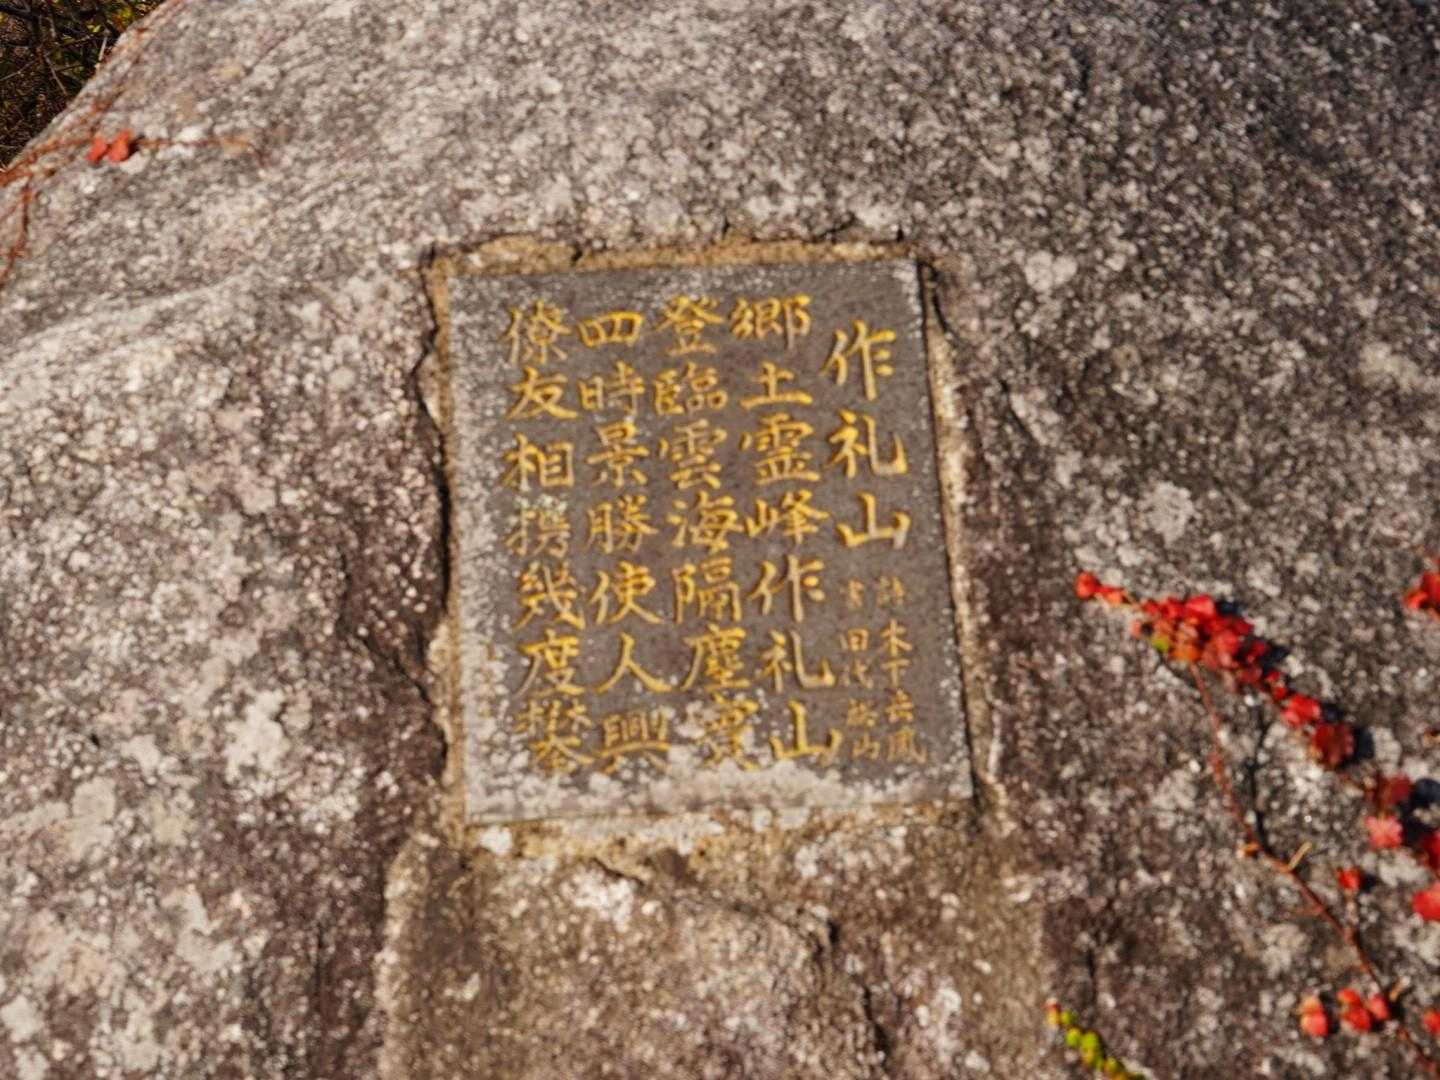 作礼山
詩 木下岳風
書 田代 山
郷土霊峰作礼山
登臨雲海隔塵寰
四時景勝使人興
僚友相携幾度攀